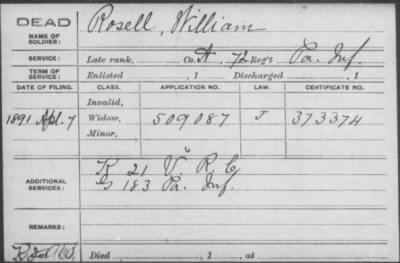 DEAD
NAME OF SOLDIER: Rosell, William
SERVICE: Late rank, Co. A, 72 Reg't Pa. Inf.
TERM OF SERVICE: Enlisted , 1 Discharged , 1
DATE OF FILING. CLASS. APPLICATION NO. LAW. CERTIFICATE NO.
Invalid,
1891 Apl. 7 Widow, 509087 J 373374
Minor,
ADDITIONAL SERVICES: K 21 V. R. C.
G 183 Pa. Inf.
REMARKS:
Died , 1 , at